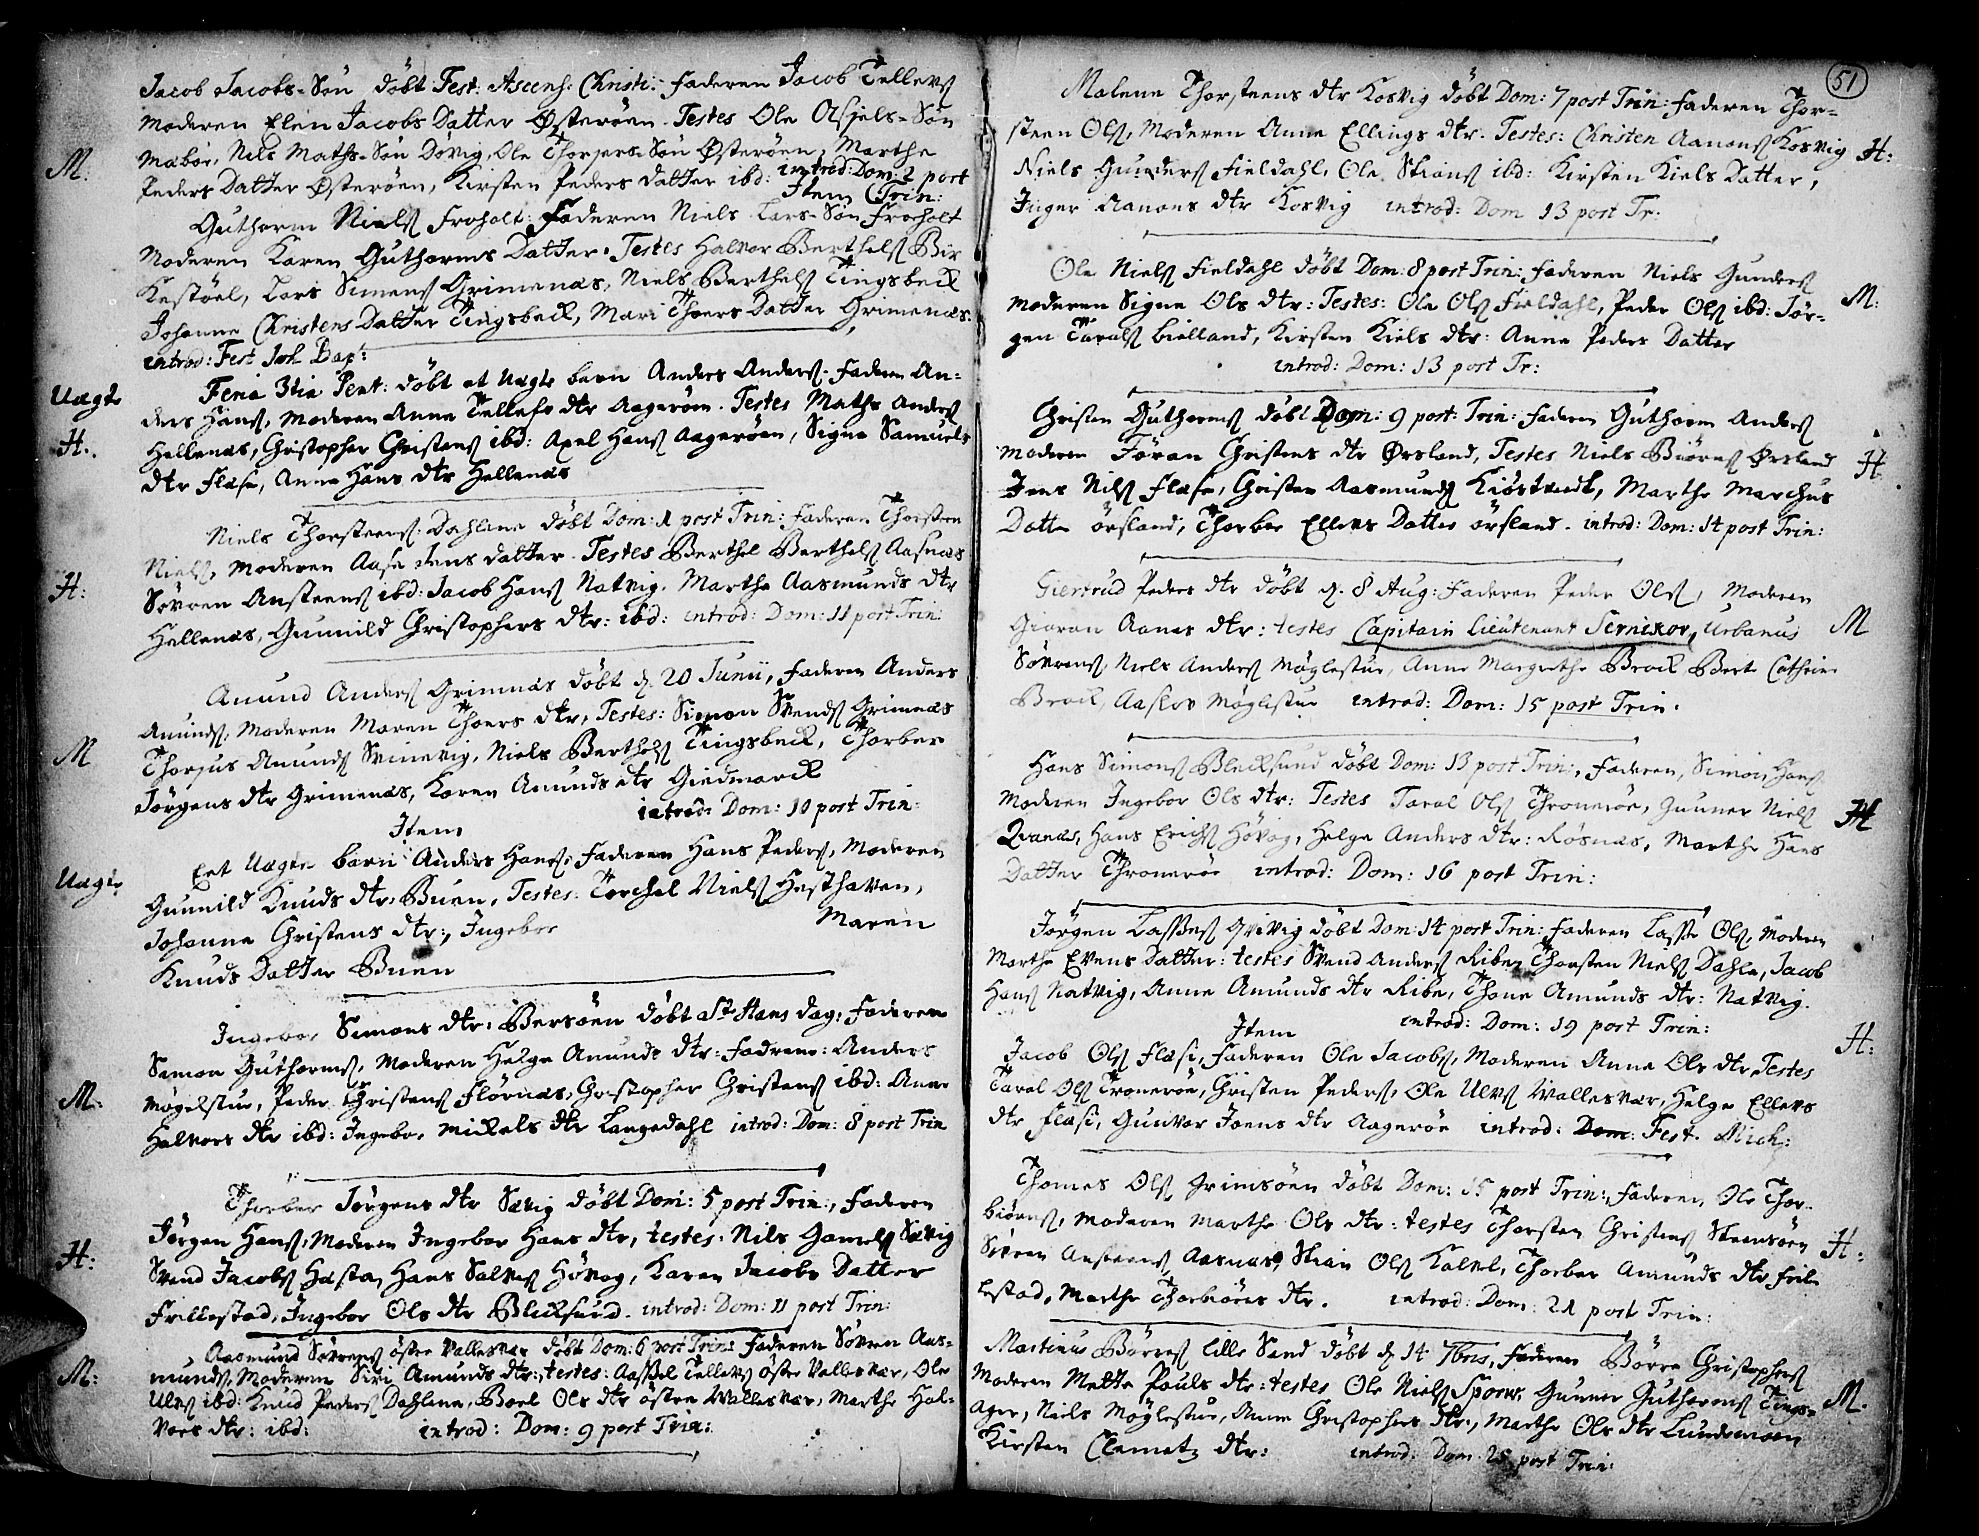 Jacob Jacobs-Søn döbt Fest: Ascens: Christi: Faderen Jacob Tellevs
Moderen Elen Jacobs Datter Østeröen. Testes Ole Olsjels-Søn
M: Mæbör, Nils Maths-Søn Dovig, Ole Thorjers-Søn Østeröen, Marthe
Peders Datter Østeröen, Kirsten Peders datter ibd: introd: Dom: 2 post
Item Trin:
Guthorm Niels Froholt: Faderen Niels Lars-Søn Froholt
Moderen Karen Guthorms Datter. Testes Halvor Berthels Bir
Kestöel, Lars Simens Grimenæs, Niels Berthels Tingsbeck
Johanne Christens Datter Tingsbeck, Mari Thoers Datter Grimenæs.
introd: Fest Joh Bapt:
Uægte Feria 3tia Pent: döbt et Uægte barn Anders Anders. Faderen An-
ders Hans, Moderen Anne Tellefs dtr Aageröen. Testes Maths Anders
H. Hellenæs, Christopher Christens ibd: Axel Hans Aageröen, Signe Samuels
dtr Flæse, Anne Hans dtr Hellenæs
Niels Thorsteens Dahlene döbt Dom: 1 post Trin: Faderen Thorsteen
Niels, Moderen Aase Jens datter. Testes Berthel Berthels Aasnæs
H: Søvren Ansteens ibd: Jacob Hans Natvig. Marthe Aasmunds dtr
Hellenæs, Gunnild Christophers dtr: ibd: introd: Dom: 11 post Trin:
Anund Anders Grimnæs döbt d. 20 Junii, Faderen Anders
Anunds, Moderen Maren Thoers dtr, Testes: Simon Svends Grimenæs
M Thorjus Anunds Svinevig, Niels Berthels Tingsbeck, Thorber
Jørgens dtr Grimenæs, Karen Amunds dtr Giedmarck
introd: Dom: 10 post Trin:
Item
Uægte Eet Uægte barn Anders Hans, Faderen Hans Peders, Moderen
Gunnild Knuds dtr. Buen, Testes: Torchel Niels Hesthaven,
Johanne Christens dtr:, Ingebor Maren
Knuds Datter Buen
Ingebor Simons dtr: Bersöen döbt a St Hans dag, Faderen
Simon Guthorms, Moderen Helge Anunds dtr: Fadrene: Anders
M: Møgelstue, Peder Christens Flörnæs, Christopher Christens ibd: Anne
Halvors dtr ibd: Ingebor Mickels dtr Langedahl introd: Dom: 8 post Trin
Thorber Jørgens dtr Sævig döbt Dom: 5 post Trin:, Faderen
Jørgen Hans, Moderen Ingebor Hans dtr, testes. Nils Gamels Sævig
H: Svend Jacobs Hæsta, Hans Salves Hövog, Karen Jacobs Datter
Frillestad, Ingebor Ols dtr Blecksund. introd: Dom: 11 post Trin:
Aasmund Sövrens östre Vallesvær döbt Dom: 6 post Trin: Faderen Sövren Aas-
M: munds, Moderen Siri Amunds dtr: testes: Aassel Tellevs öster Vallesvær, Ole
Ulvs ibd: Knud Peders Dahlene, Boel Ols dtr östre Vallesvær, Marthe Hal-
vors dtr: ibd: introd: Dom: 9 post Trin:
51
Malene Thorsteens dtr Kosvig döbt Dom: 7 post Trin: Faderen Thor-
steen Ols, Moderen Anne Ellings dtr. Testes: Christen Aanons Kosvig H:
Niels Gunders Fieldahl, Ole Stians ibd: Kirsten Kiels Datter,
Inger Aanons dtr Kosvig introd: Dom 13 post Tr:
Ole Niels Fieldahl döbt Dom: 8 post Trin:, Faderen Niels Gunders
Moderen Signe Ols dtr: Testes: Ole Ols Fieldahl, Peder Ols ibd: Jør- M:
gen Tarals Bielland, Kirsten Kiels dtr: Anne Peders Datter
introd: Dom: 13 post Tr:
Christen Guthorms döbt Dom: 9 post: Trin: Faderen Guthorm Anders
Moderen Föran Christens dtr Ørsland, Testes Niels Biörns Ørsland H
Jens Nils Flæse, Christen Aasmunds Kiöstvedt, Marthe Marchus
Datter örsland, Thorber Ellevs Datter örsland. introd: Dom: 14 post Trin:
Giertrud Peders dtr döbt d. 8 Aug: Faderen Peder Ols, Moderen
Giøran Aanes dtr: testes Capitain Lieutenant Sernikov, Urbanus M
Sövrens, Niels Anders Möglestue, Anne Margrethe Brock Berte Cathrine
Brock, Aaslov Möglestue introd: Dom: 15 post Trin.
Hans Simons Blecksund döbt Dom: 13 post Trin:, Faderen, Simon Hans
Moderen Ingebor Ols dtr: Testes Taral Ols Throneröe, Gunner Niels H
Qvanæs, Hans Erichs Hövog, Helge Anders dtr: Røsnæs, Marthe Hans
Datter Throneröe introd: Dom: 16 post Trin:
Jørgen Lasses Qvivig döbt Dom: 14 post Trin: Faderen Lasse Ols, Moderen
Marthe Evens datter: testes Svend Anders Ribe, Thorsten Niels Dahle, Jacob
Hans Natvig, Anne Amunds dtr Ribe, Thone Amunds dtr: Natvig.
Item introd: Dom: 19 post Trin:
Jacob Ols Flæse, Faderen Ole Jacobs, Moderen Anne Ols dtr, Testes H:
Taral Ols Troneröe, Christen Peders, Ole Ulvs Vallesvær, Helge Ellevs
dtr Flæse, Gunvor Joens dtr Aageröe introd: Dom: Fest. Mich:
Thomes Ols Grimsöen döbt Dom: 15 post Trin:, Faderen, Ole Thor-
biörns, Moderen Marthe Ols dtr: testes Thorsten Christens Steensöen
Sövren Ansteens, Aasnæs, Stian Ols Kalvel, Thorber Amunds dtr Frile- H:
lestad, Marthe Thorbiörns dtr. introd: Dom: 21 post Trin:
Martinus Börres Lille Sand döbt d 14 7bris, Faderen Börre Christophers
Moderen Mette Pouls dtr: testes Ole Niels Sporv. Gunner Guthorms Tings- M.
Ager, Niels Möglestue, Anne Christophers dtr:, Marthe Ols dtr Lundemoen
Kirsten Clemetz dtr: introd: Dom. 25 post Trin: